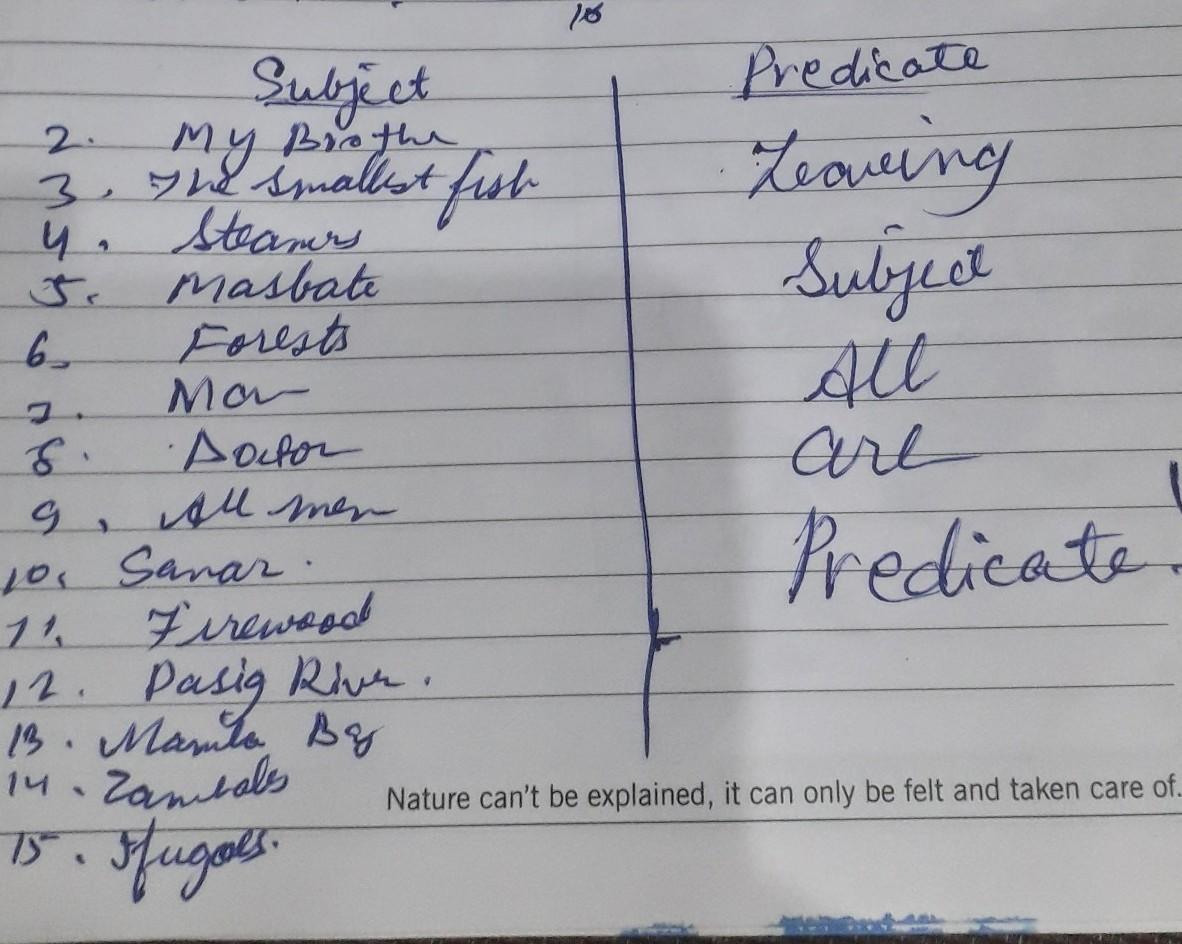 Subject
2. My Brothe
3. The smallest fish
4. Steamers
5. Masbate
6. Forests
7. Man
8. Doctor
9. All men
10. Samar.
11. Firewood
12. Pasig River.
13. Manila
14. Zambales
15. Ifugaos.
Predicate
Leaveing
Subject
All
are
Predicate.
Nature can't be explained, it can only be felt and taken care of.